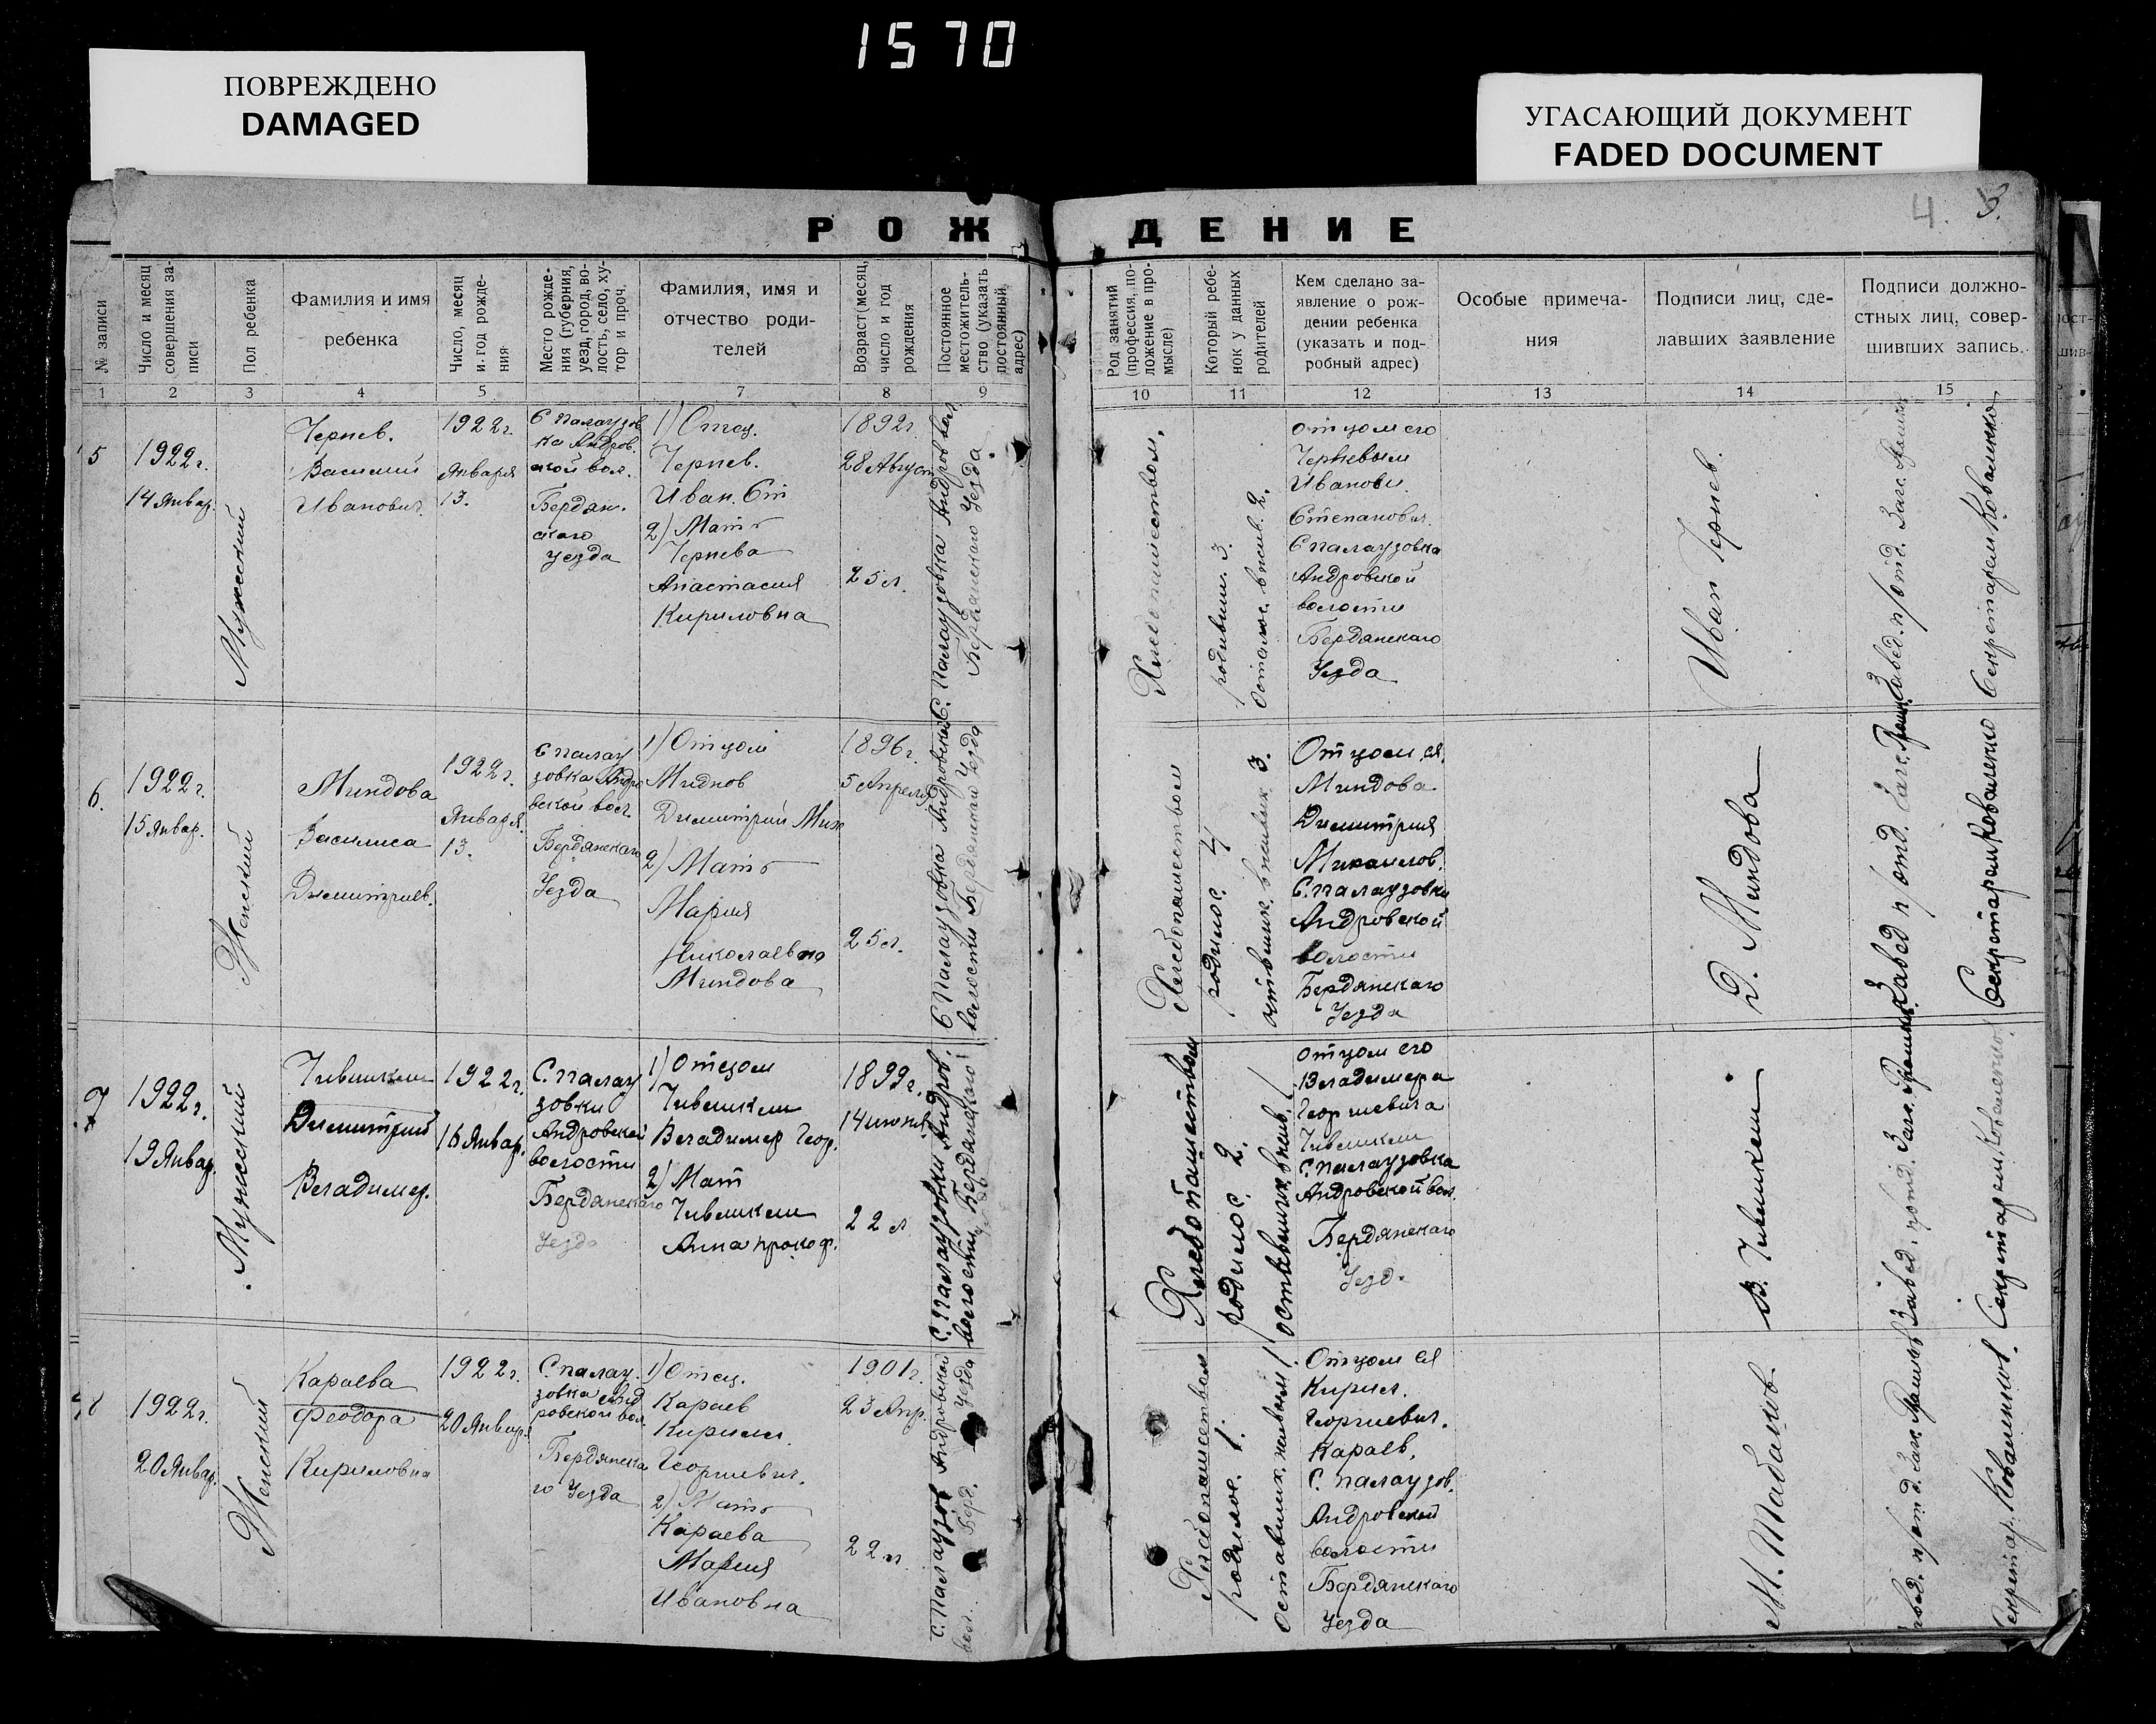 1570
ПОВРЕЖДЕНО
DAMAGED
УГАСАЮЩИЙ ДОКУМЕНТ
FADED DOCUMENT
4. 3.
РОЖДЕНИЕ
№ записи
Число и месяц
совершения за-
писи
Пол ребенка
Фамилия и имя
ребенка
Число, месяц
и год рожде-
ния
Место рожде-
ния (губерния,
уезд, город, во-
лость, село, ху-
тор и проч.
Фамилия, имя и
отчество роди-
телей
Возраст (месяц,
число и год
рождения
Постоянное
местожитель-
ство (указать
постоянный
адрес)
Род занятий
(профессия, по-
ложение в про-
мысле)
Который ребе-
нок у данных
родителей
Кем сделано за-
явление о рож-
дении ребенка
(указать и под-
робный адрес)
Особые примеча-
ния
Подписи лиц, сде-
лавших заявление
Подписи должно-
стных лиц, совер-
шивших запись.
1 2 3 4 5 6 7 8 9 10 11 12 13 14 15
5
1922 г.
14 Январ.
Мужеский
Чернев.
Василий
Иванович.
1922 г.
Января
13.
С Палаузов
ка Андров.
ской вол.
Бердян.
скаго
Уезда
1) Отец.
Чернев.
Иван. Ст
2) Мать
Чернева
Анастасия
Кириловна
1892 г.
28 Август
25 л.
С. Палаузовка Андров вол.
Бердянскаго Уезда
Хлебопашеством.
родивших. 3.
осталос. в жив. 2.
отцом его
Черневым
Иванови.
Степанович.
С палаузовка
Андровской
волости
Бердянскаго
Уезда
Иван Чернев.
Завед. п/отд. Загс.
Секретарь Коваленко
6.
1922 г.
15 Январ.
Женский
Миндова
Василиса
Димитриев.
1922 г.
Января.
13.
С палау
зовка Андро
вской вол.
Бердянскаго
Уезда
1) Отцом
Миднов
Димитрий Мих
2) Мать
Мария
Николаевна
Миндова
1896 г.
5 Апреля
25 л.
С Палаузовка Андровской
волости Бердянскаго Уезда
Хлебопашеством
родилос. 4
оставших. в живых 3.
Отцом ея
Миндова
Димитрия
Михаилов.
С. палаузовки
Андровской
волости
Бердянскаго
Уезда
Д. Миндова
Завед п/отд. Загс.
Секретарь Коваленко
7
1922 г.
19 Январ.
Мужеский
Чившикли
Димитрий
Владимер.
1922 г.
16 Январ.
С. палау
зовки
Андровской
волости
Бердянскаго
Уезда
1) Отцом
Чившикли
Владимер Геор.
2) Мат
Чившикли
Анна Прокоф.
1899 г.
14 июня
22 л
С. Палаузовки Андров.
волости Бердянскаго
Хлебопашеством
родилос. 2.
оставших. в жив. 1
отцом его
Владимера
Георгиевича
Чившикли
С. палаузовка
Андровской вол.
Бердянскаго
Уезд.
В. Чившикли
Завед. п/отд. Загс.
Секретарь Коваленко
8
1922 г.
20 Январ.
Женский
Караева
Феодора
Кириловна
1922 г.
20 Январ.
С. палау.
зовка Анд
ровской вол.
Бердянска
го Уезда
1) Отец.
Караев
Кирилл.
Георгиевич.
2) Мать
Караева
Мария
Ивановна
1901 г.
23 Апр.
22 л
С. Палаузов Андровской
вол. Берд. Уезда
Хлебопашеством
родилос. 1.
оставших. живым 1.
Отцом ея
Кирил.
Георгиевич.
Караев.
С. палаузов.
Андровской
волости
Бердянскаго
Уезда
М. Табаков.
Завед. п/отд. Загс.
Секретар. Коваленков.